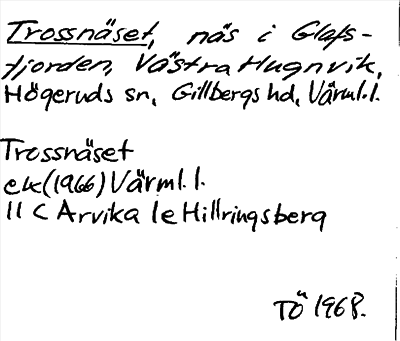 Trossnäset, näs i Glafs-
fjorden, Västra Hugnvik,
Högeruds sn, Gillbergs hd, Värml. l.
Trossnäset
ek (1966) Värml. l.
11 C Arvika 1e Hillringsberg
TÖ 1968.